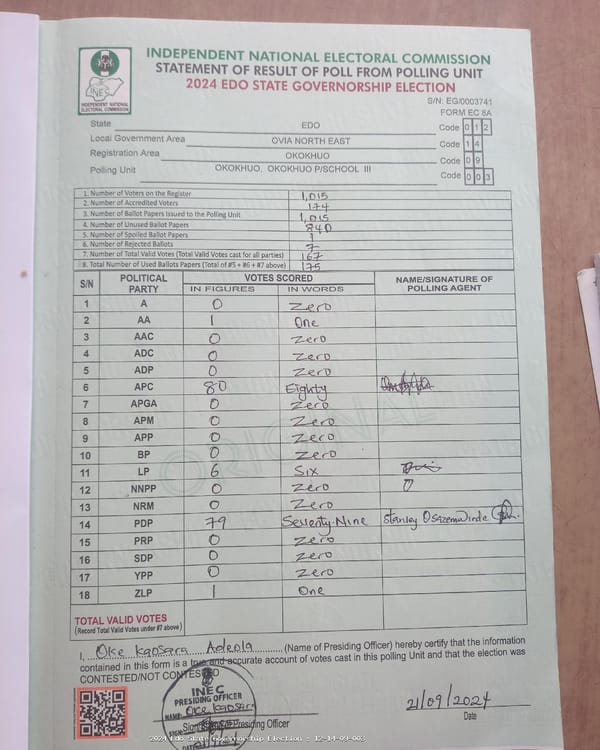 INDEPENDENT NATIONAL ELECTORAL COMMISSION
STATEMENT OF RESULT OF POLL FROM POLLING UNIT
2024 EDO STATE GOVERNORSHIP ELECTION
INEC
INDEPENDENT NATIONAL ELECTORAL COMMISSION
S/N: EG/0003741
FORM EC 8A
State EDO Code 0 1 2
Local Government Area OVIA NORTH EAST Code 1 4
Registration Area OKOKHUO Code 0 9
Polling Unit OKOKHUO, OKOKHUO P/SCHOOL III Code 0 0 3
1. Number of Voters on the Register 1,015
2. Number of Accredited Voters 174
3. Number of Ballot Papers Issued to the Polling Unit 1,015
4. Number of Unused Ballot Papers 840
5. Number of Spoiled Ballot Papers 1
6. Number of Rejected Ballots 7
7. Number of Total Valid Votes (Total Valid Votes cast for all parties) 167
8. Total Number of Used Ballots Papers (Total of #5 + #6 + #7 above) 175
S/N POLITICAL PARTY VOTES SCORED NAME/SIGNATURE OF POLLING AGENT
IN FIGURES IN WORDS
1 A 0 Zero
2 AA 1 One
3 AAC 0 Zero
4 ADC 0 Zero
5 ADP 0 Zero
6 APC 80 Eighty
7 APGA 0 Zero
8 APM 0 Zero
9 APP 0 Zero
10 BP 0 Zero
11 LP 6 Six
12 NNPP 0 Zero
13 NRM 0 Zero
14 PDP 79 Seventy-Nine Stanley
15 PRP 0 Zero
16 SDP 0 Zero
17 YPP 0 Zero
18 ZLP 1 One
ORIGINAL
TOTAL VALID VOTES
(Record Total Valid Votes under #7 above)
I, Oke Kaosara Adeola (Name of Presiding Officer) hereby certify that the information
contained in this form is a true and accurate account of votes cast in this polling Unit and that the election was
CONTESTED/NOT CONTESTED
INEC
PRESIDING OFFICER
NAME: Oke Kaosara
Signature of Presiding Officer
21/09/2024
Date
2024 Edo State Governorship Election - 12-14-09-003